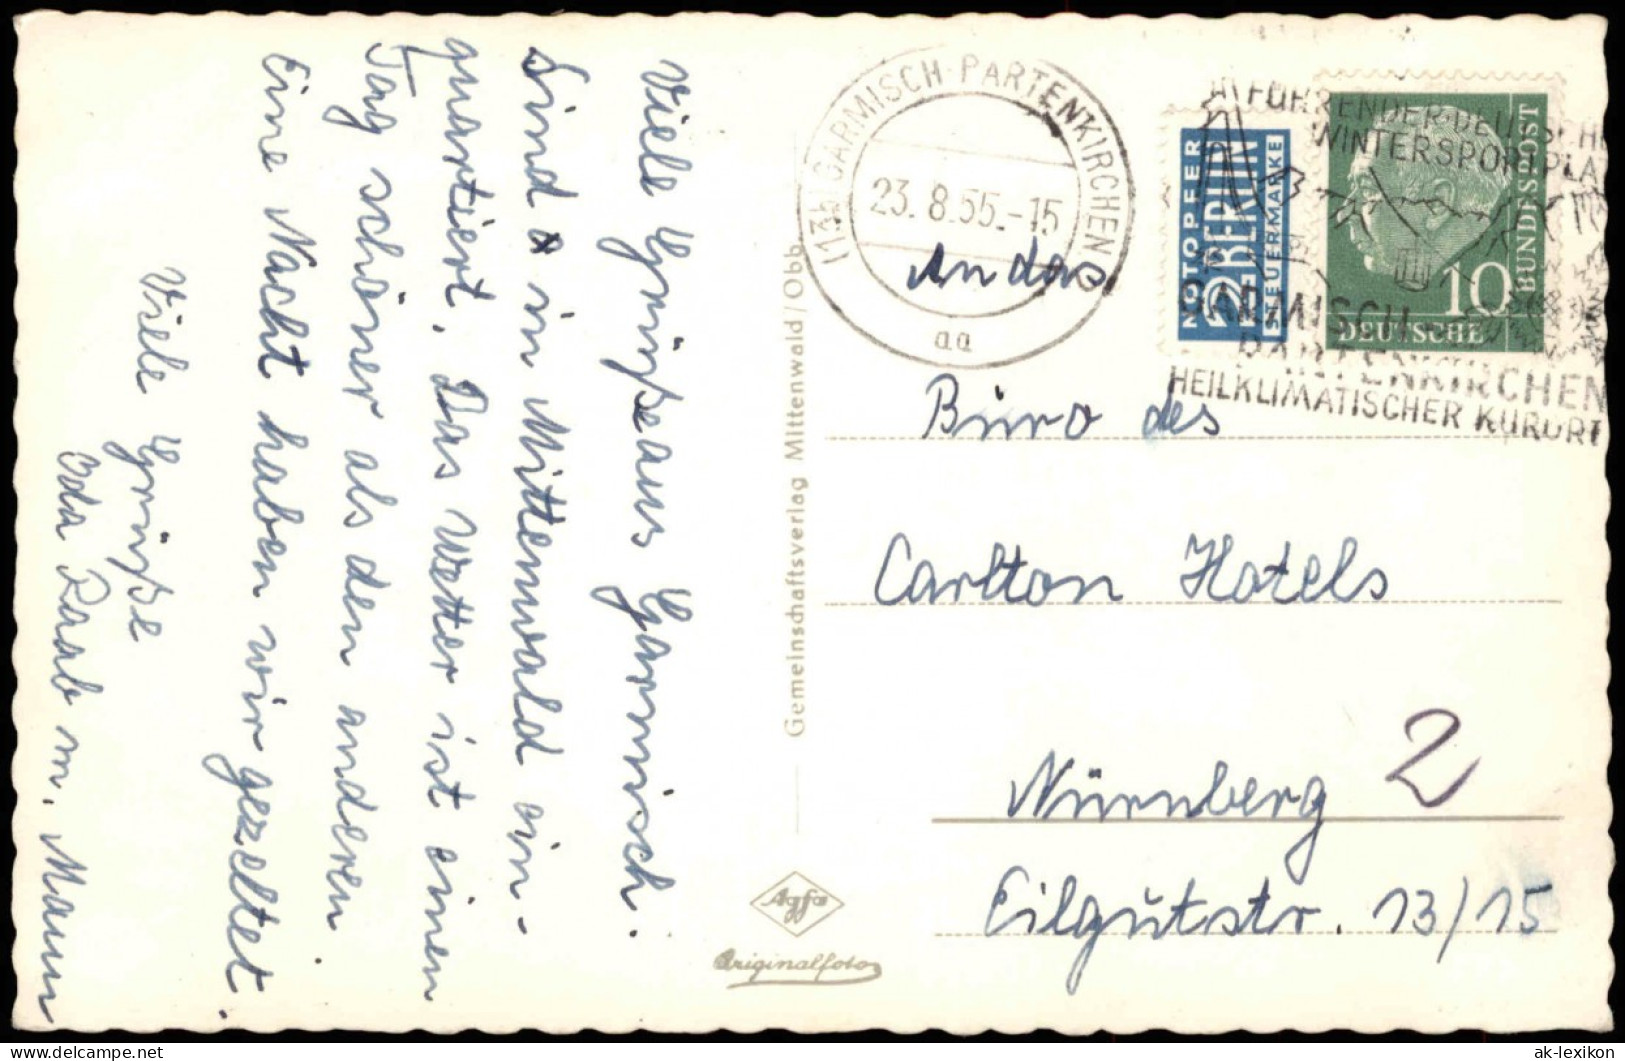 Viele Grüße aus Garmisch.
Sind in Mittenwald ein-
quartiert. Das Wetter ist einen
Tag schöner als den anderen
Eine Nacht haben wir gezeltet
Viele Grüße
Raab m. Mann
Gemeinschaftsverlag Mittenwald/Obb.
Agfa
Originalfoto
(13b) GARMISCH-PARTENKIRCHEN
23.8.55.-15
aa
NOTOPFER
2 BERLIN
STEUERMARKE
FÜHRENDER DEUTSCHER
WINTERSPORTPLA
GARMISCH-
PARTENKIRCHEN
HEILKLIMATISCHER KURORT
10
DEUTSCHE
BUNDESPOST
An das
Büro des
Carlton Hotels
Nürnberg 2
Eilgutstr. 13/15
ak-lexikon